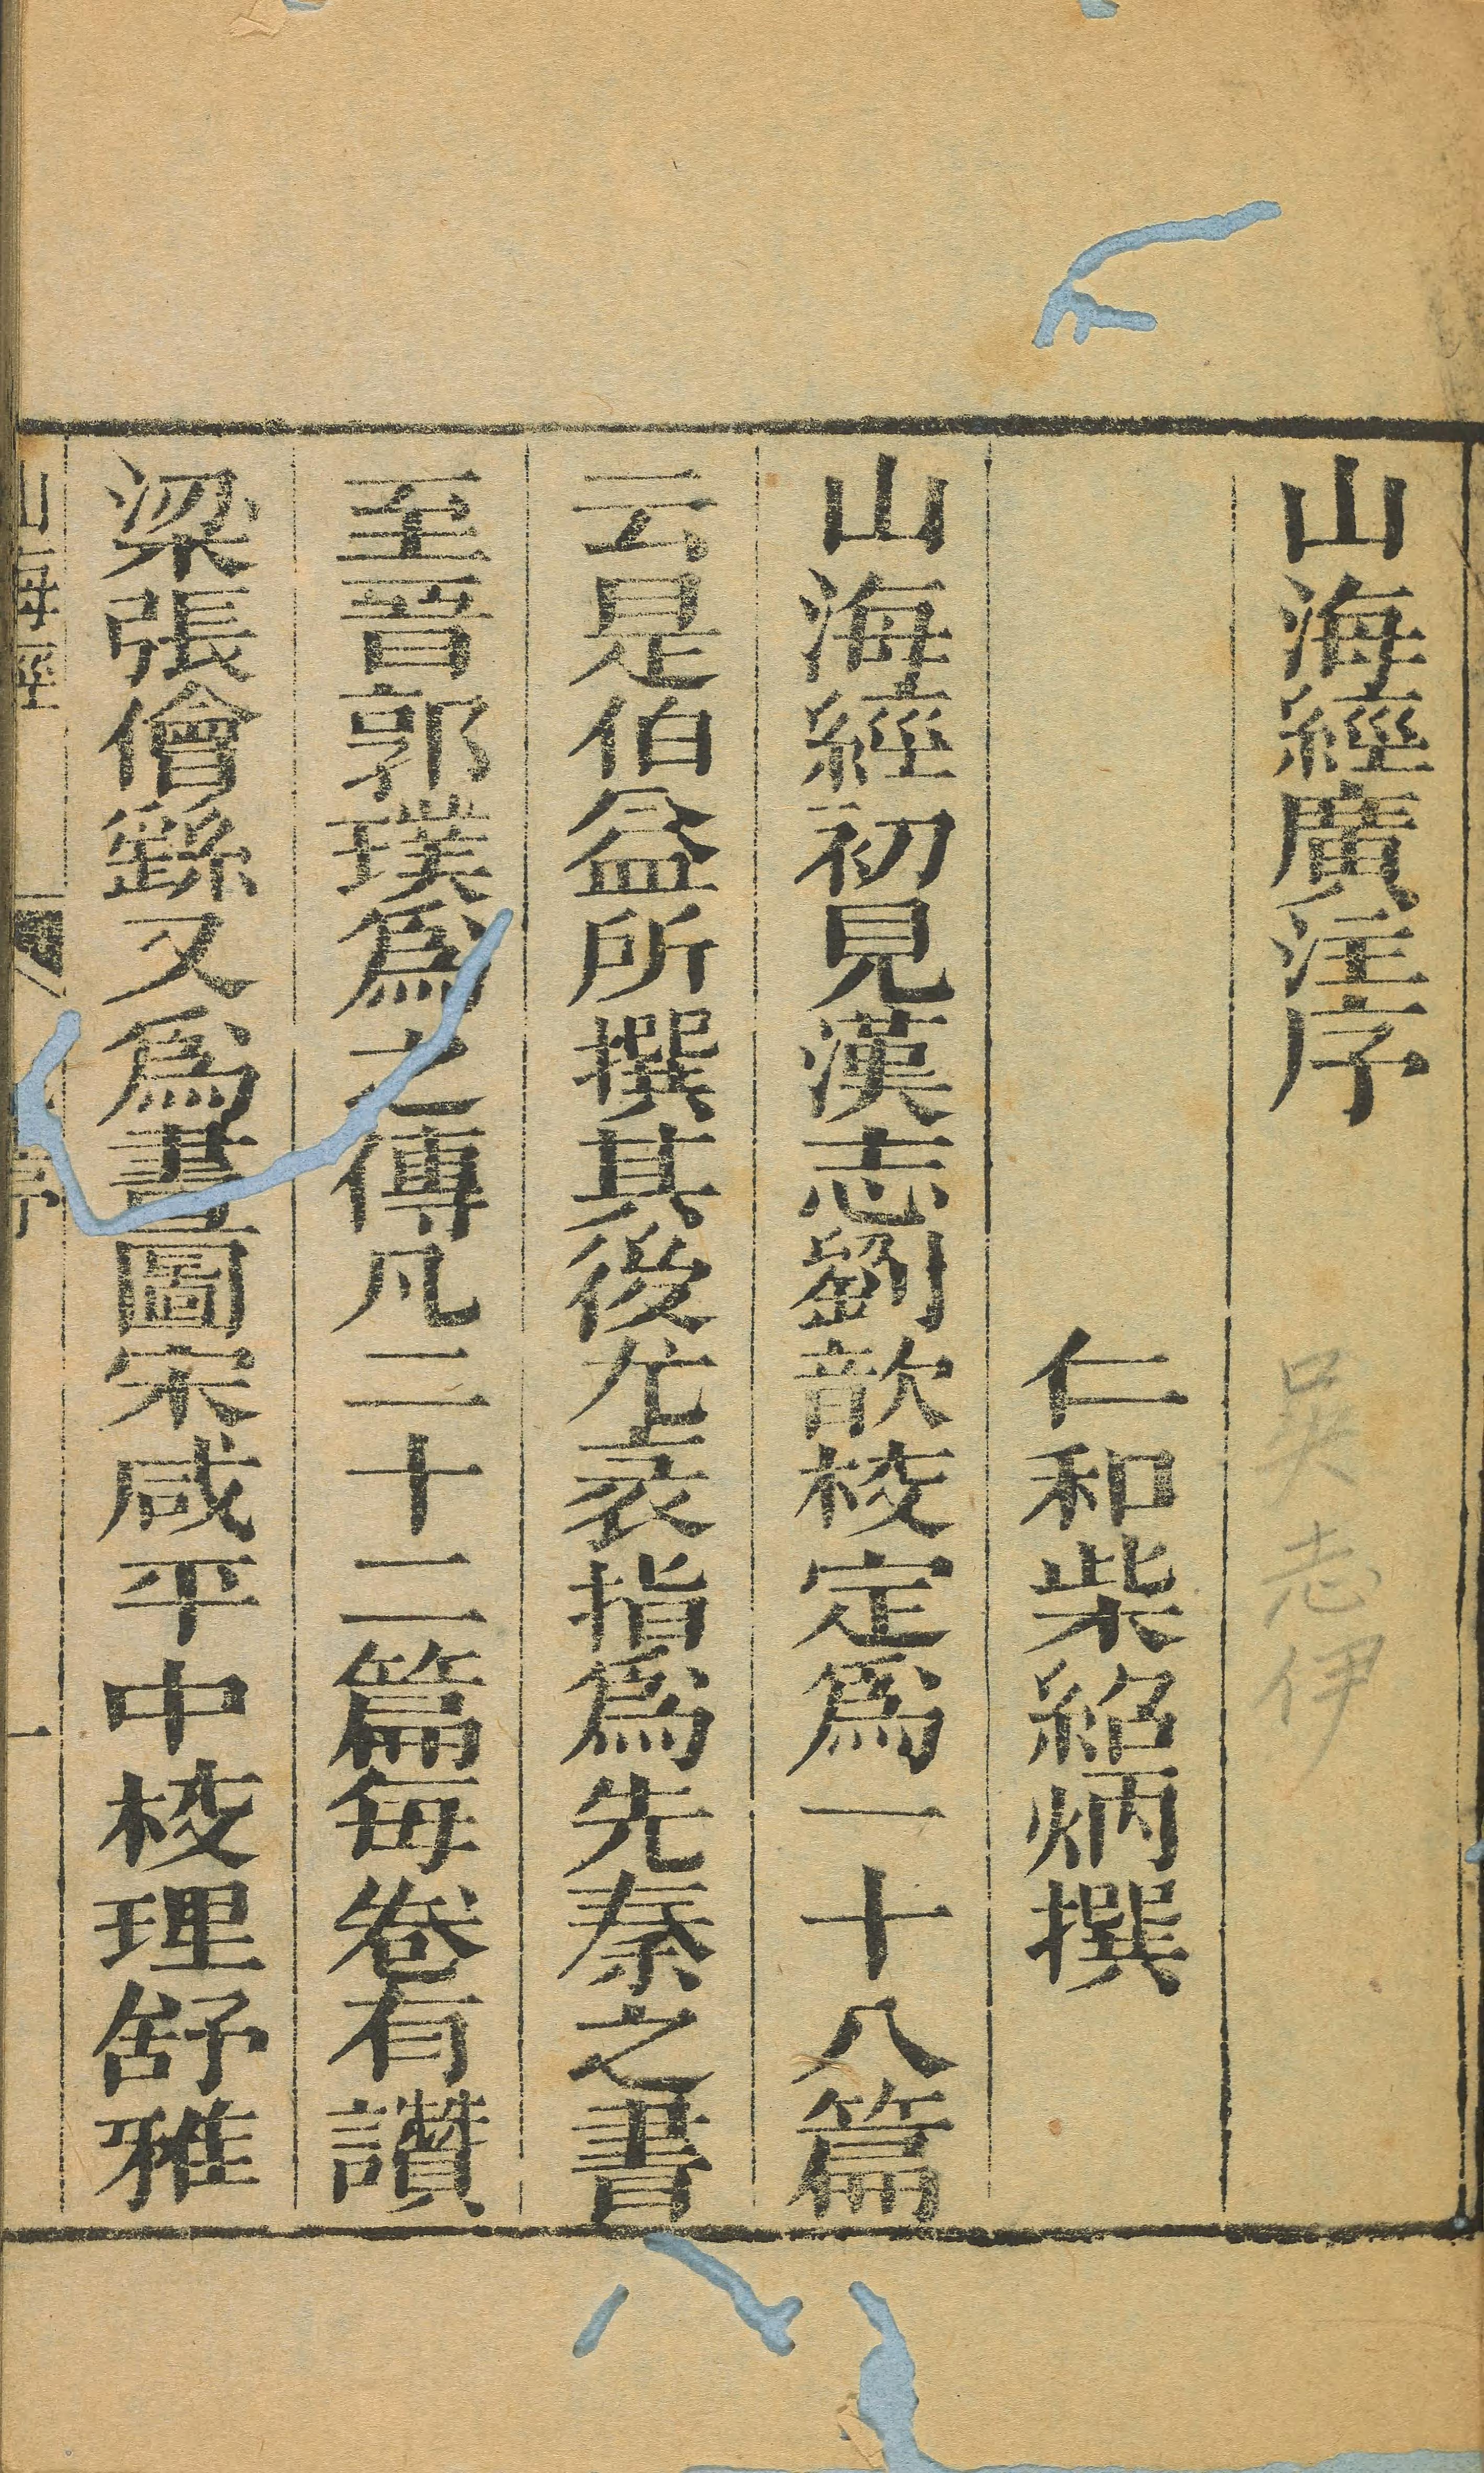 山海經廣注序
吳志伊
仁和柴紹炳撰
山海經初見漢志劉歆校定爲一十八篇
云是伯益所撰其後尤袤指爲先秦之書
至晉郭璞爲之傳凡二十二篇每卷有讚
梁張僧繇又爲畫圖宋咸平中校理舒雅
山海經
序
一